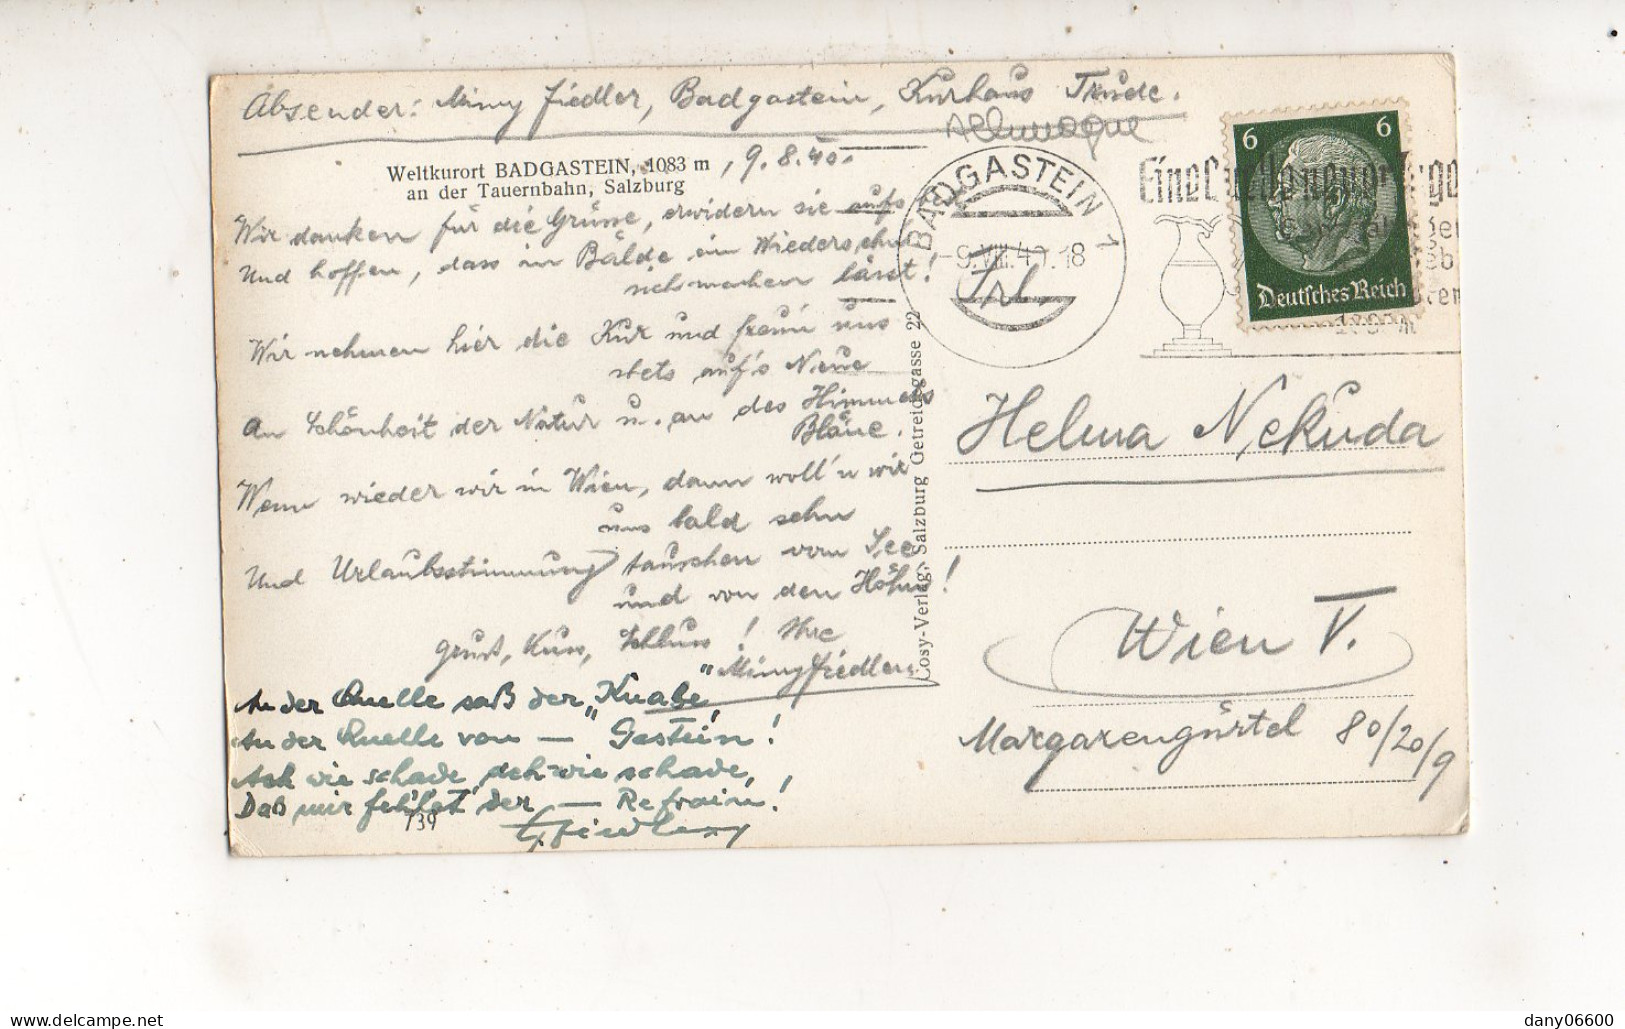 Absender: Mimy Fiedler, Badgastein, Kurhaus Trude.
Allemagne
Weltkurort BADGASTEIN, 1083 m
an der Tauernbahn, Salzburg
, 9.8.40.
Wir danken für die Grüsse, erwidern sie aufs
Und hoffen, dass in Bälde ein Wiedersehn
sich machen lässt!
Wir nehmen hier die Kur und freun uns
stets auf's Neue
An Schönheit der Natur u. an des Himmels
Bläue.
Wenn wieder wir in Wien, dann woll'n wir
uns bald sehn
Und Urlaubsstimmung tauschen vom See
und von den Höhn!
Gruss, Kuss, Schluss! Ihre
"Mimy Fiedler
An der Quelle saß der "Knabe,
An der Quelle von — Gastein!
Ach wie schade, ach wie schade,
Daß mir fehlet der — Refrain!
739
Cosy-Verlag, Salzburg Getreidegasse 22
BADGASTEIN 1
-9.VIII.40.18
6 6
Deutsches Reich
Helma Nekuda
Wien V.
Margaretengürtel 80/20/9
dany06600